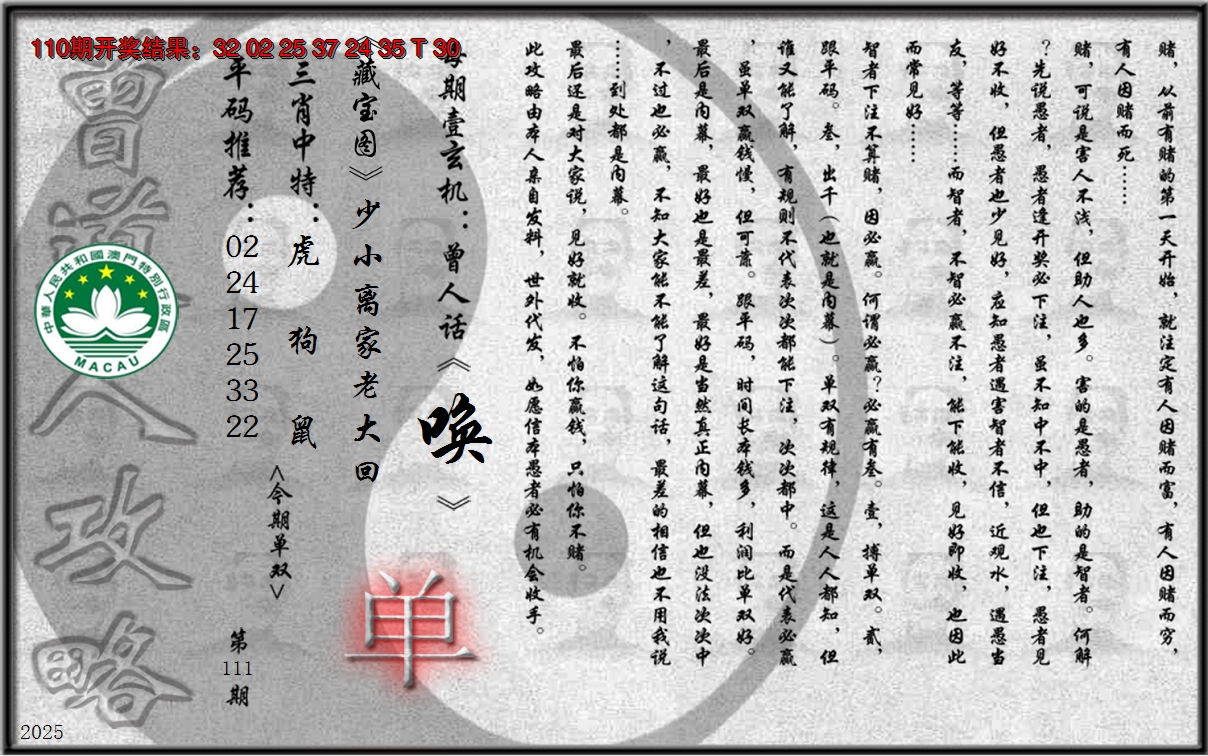 110期开奖结果：32 02 25 37 24 35 T 30
赌，从前有赌的第一天开始，就注定有人因赌而富，有人因赌而穷，
有人因赌而死……
赌，可说是害人不浅，但助人也多。害的是愚者，助的是智者。何解
？先说愚者，愚者逢开奖必下注，虽不知中不中，但也下注，愚者见
好不收，但愚者也少见好，应知愚者遇害智者不信，近观水，遇愚当
友，等等……而智者，不智必赢不注，能下能收，见好即收，也因此
而常见好……
智者下注不算赌，因必赢。何谓必赢？必赢有叁。壹，搏单双。贰，
跟平码。叁，出千（也就是内幕）。单双有规律，这是人人都知，但
谁又能了解，有规则不代表次次都能下注，次次都中。而是代表必赢
，虽单双赢钱慢，但可靠。跟平码，时间长本钱多，利润比单双好。
最后是内幕，最好也是最差，最好是当然真正内幕，但也没法次次中
，不过也必赢，不知大家能不能了解这句话，最差的相信也不用我说
……到处都是内幕。
最后还是对大家说，见好就收。不怕你赢钱，只怕你不赌。
此攻略由本人亲自发料，世外代发，如愿信本愚者必有机会收手。
每期壹玄机：曾人话《唤》
《藏宝图》少小离家老大回
三肖中特：虎 狗 鼠
<今期单双>
单
平码推荐：
02
24
17
25
33
22
第
111
期
曾道人攻略
中華人民共和國澳門特別行政區
MACAU
2025